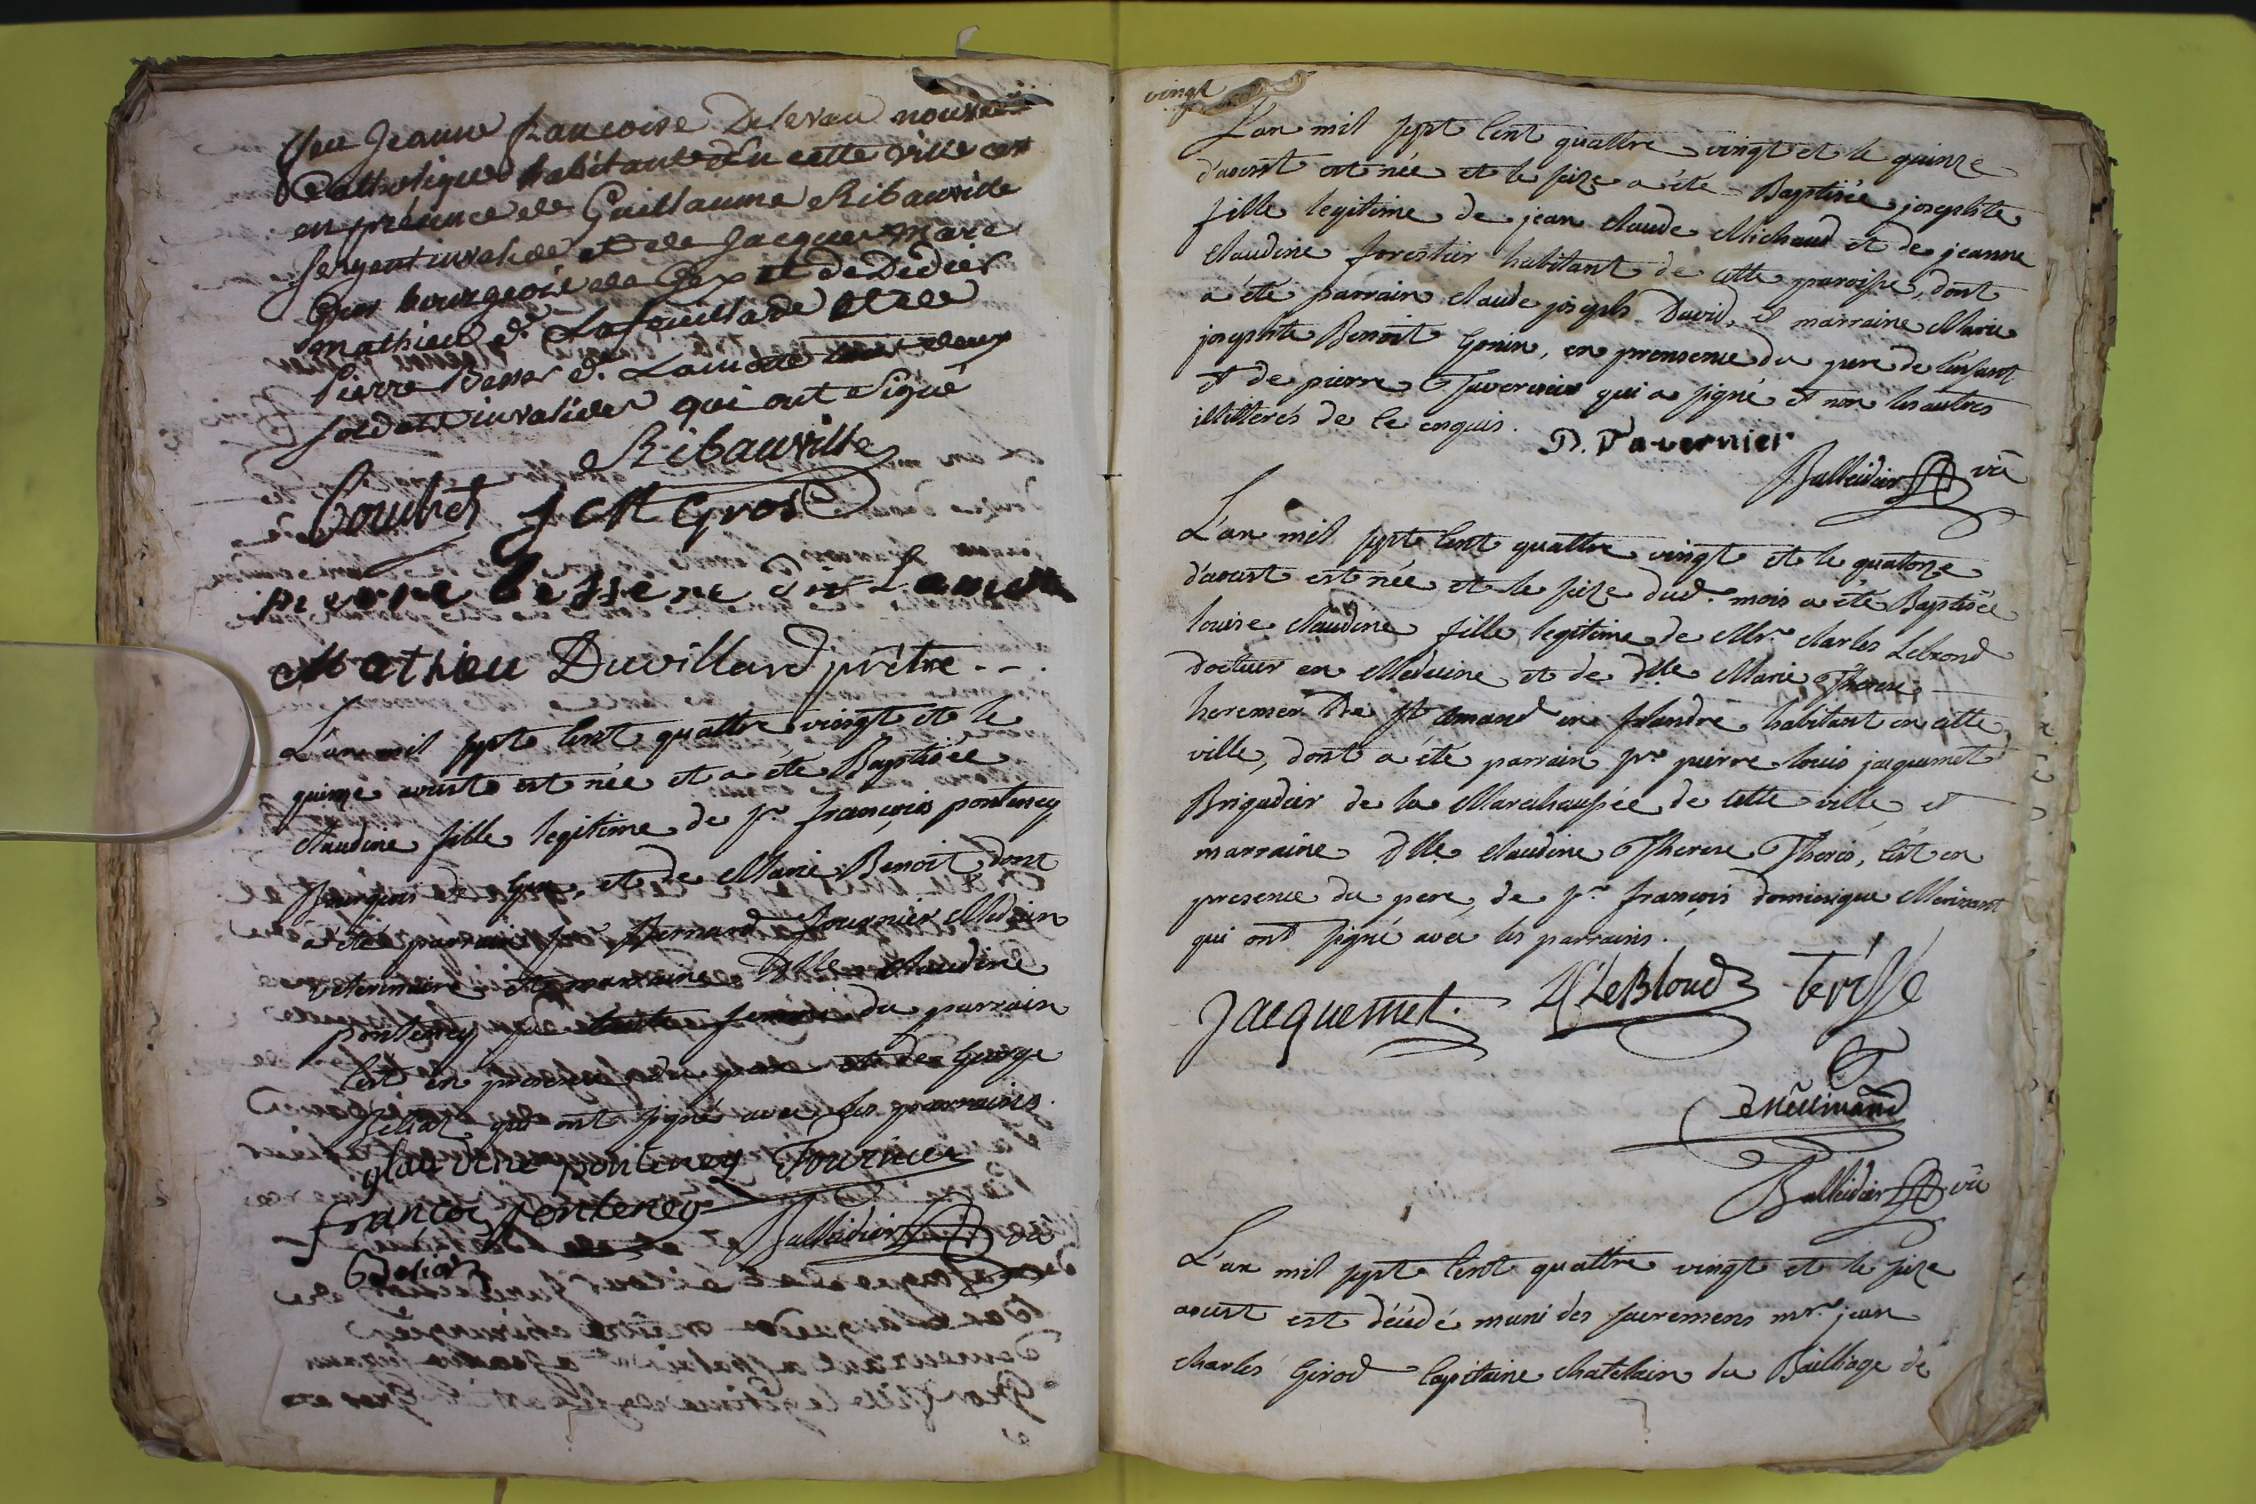 Jeanne francoise Delevau nouvelle
Catholique habitante en cette ville en
en présence de Guillaume Ribauville
sergent invalide et de Jacques Marc
Gros bourgeois de Gex et de Dedier
mathieu dt Lafeuillade et de
Pierre Besser dt. Lamotte tout deux
soldats invalides qui ont Signé
Ribauville
Bouchet J M Gros
pierre bessere dit
Mathieu Duvillard prêtre
L'an mil sept Cent quattre vingt et le
quinze aoust est née et a été Baptisée
Claudine fille legitime de Sr. françois ponteney
Bourgeois de Gex, et de Marie Benoit, dont
a été parrain Sr. Bernard fournier Medecin
veterinaire et marraine Dlle Claudine
ponteney du parrain
C'est en presence du George
Béliar qui ont signé avec les parrains.
glaudine ponteney Fournier
françois ponteney
Balleidier vic
Béliar
vingt
L'an mil sept Cent quattre vingt et le quinze
d'aoust est née et le seize a été Baptisée josephte
fille legitime de jean Claude Michaud et de jeanne
Claudine forestier habitant de cette paroisse, dont
a été parrain Claude joseph David, et marraine Marie
josephte Benoit Gonin, en prensence du pere de l'enfant
et de pierre Tavernier qui a signé et non les autres
illitterés de ce enquis.
P. Tavernier
Balleidier vic
L'an mil sept Cent quattre vingt et le quatorze
d'aoust est née et le seize dud. mois a été Baptisée
louise Claudine fille legitime de Mr. Charles Leblond
docteur en Medecine et de dlle Marie Therese
heremer De St amand en flandre habitant en cette
ville, dont a été parrain Sr. pierre louis jaquemet
Brigadier de la Marechaussée de cette ville et
marraine Dlle Claudine Therese Therés, c'est en
presence du pere, de Sr. françois dominique
qui ont signé avec les parrains.
Jacquemet. LeBlond Terisse
Balleidier vic
L'an mil sept Cent quattre vingt et le seize
aoust est décédé muni des sacremens mr. jean
charles Girod Capitaine chatelain du Bailliage de